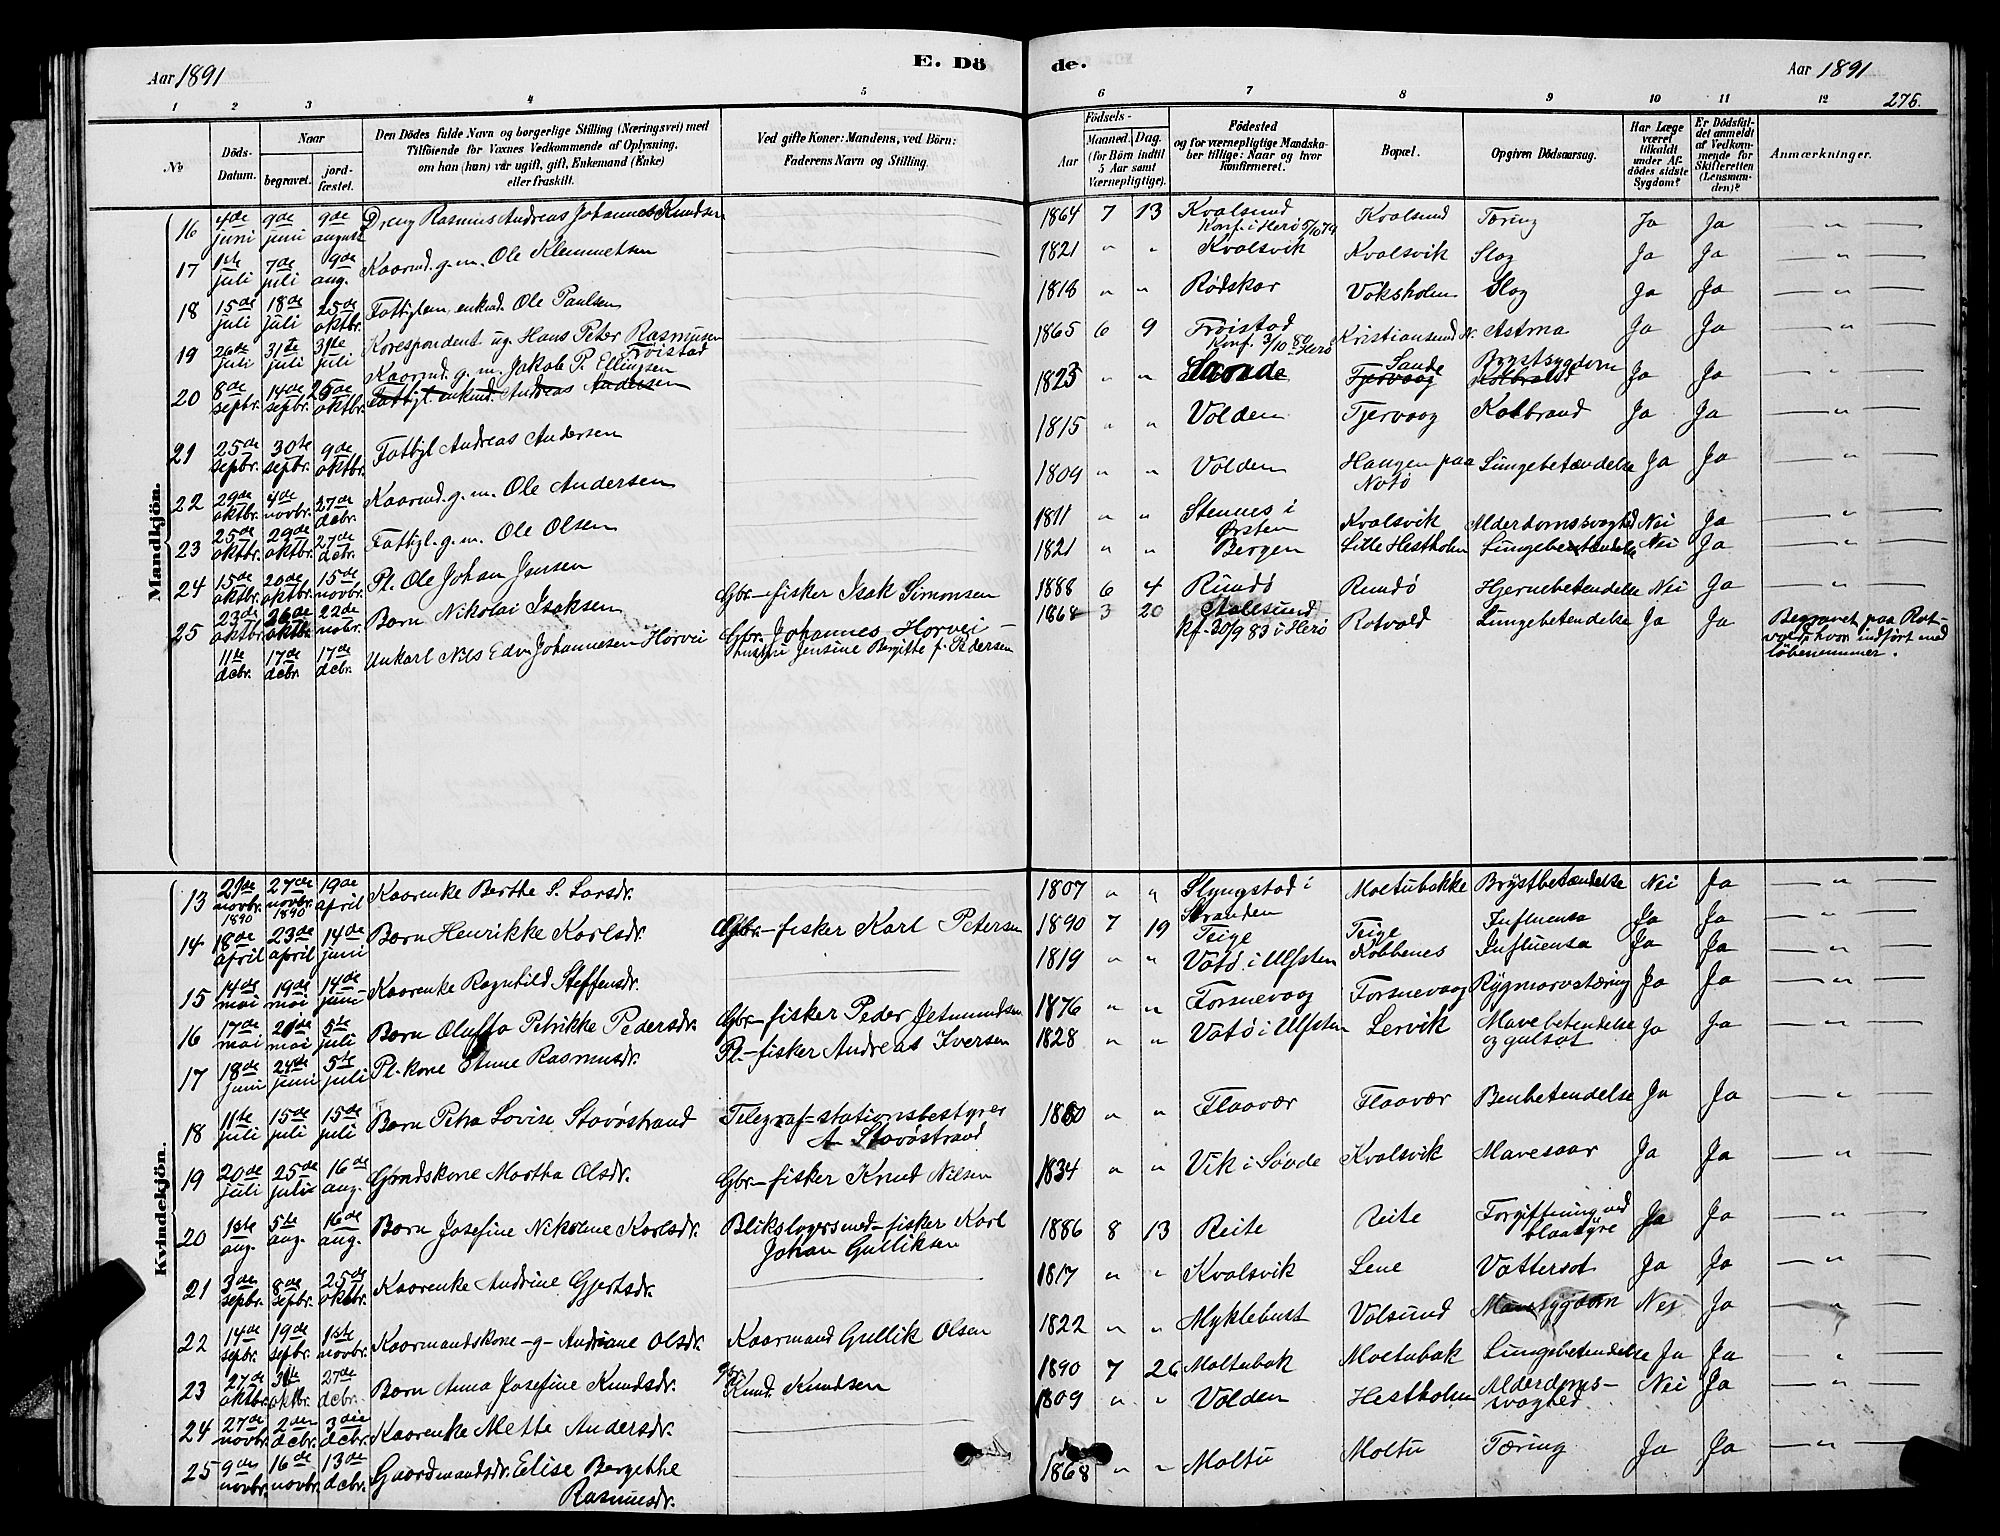 Aar 1891
E. Dö
de.
Aar 1891
276.
1 2 3 4 5
6 7 8 9 10 11 12
No
Döds-Datum.
Naar
begravet.
jord-fæstet.
Den Dödes fulde Navn og borgerlige Stilling (Næringsvei) med
Tilföiende for Voxnes Vedkommende af Oplysning,
om han (hun) var ugift, gift, Enkemand (Enke)
eller fraskilt.
Ved gifte Koner: Mandens, ved Börn:
Faderens Navn og Stilling.
Födsels-
Aar
Maaned. Dag.
(for Börn indtil
5 Aar samt
Værnepligtige).
Födested
og for værnepligtige Mandska-
ber tillige: Naar og hvor
konfirmeret.
Bopæl.
Opgiven Dödsaarsag.
Har Læge
været
tilkaldt
under Af-
dödes sidste
Sygdom?
Er Dödsfal-
det anmeldt
af Vedkom-
mende for
Skifteretten
(Lensman-
den)?
Anmærkninger.
Mandkjön.
16 4de juni 9de juni 9de august Dreng Rasmus Andreas Johannes Knudsen 1864 7 13 Kvalsund Konf. i Herö 5/10 79 Kvalsund Tæring Ja Ja — " —
17 1ste juli 7de juli 9de aug. Kaarmd. g. m. Ole Klemmetsen 1821 " " Kvalsvik Kvalsvik Slag Ja Ja — " —
18 15de juli 18de juli 25de oktbr. Fattiglem, enkmd. Ole Paulsen 1818 " " Rødskar Voksholm Slag Ja Ja — " —
19 26de juli 31te juli 31te juli Korespondent ug. Hans Peter Rasmusen Frøistad 1865 6 9 Frøistad Konf. 3/10 80 Herö Kristiansund N. Astma Ja Ja — " —
20 8de sepbr. 14de sepbr. 25de oktbr. Kaarmd. g. m. Jakob P. Ellingsen Fattigl. enkmd. Andreas Andersen 1823 " " Sande Sande Tjervaag Brystsygdom Kolbrand Ja Ja — " —
21 25de sepbr. 30te sepbr. 9de oktbr. Fattigl Andreas Andersen 1815 " " Volden Tjervaag Kolbrand Ja Ja — " —
22 29de oktbr. 4de novbr. 27de dcbr. Kaarmd. g. m. Ole Andersen 1809 " " Volden Haugen paa Notö Lungebetændelse Ja Ja — " —
23 25de oktbr. 29de oktbr. 27de dcbr. Fattigl. g. m. Ole Olsen 1811 " " Stennes i Ørsten Kvalsvik Alderdomssvaghed Nei Ja — " —
24 15de oktbr. 20de oktbr. 15de novbr. Pl. Ole Johan Jensen 1821 " " Bergen Lille Hestholm Lungebetændelse Nei Ja
25 23de oktbr. 26de oktbr. 22de nobr. Barn Nikolai Isaksen Gbr.-fisker Isak Simonsen 1888 6 4 Rundö Rundö Hjernebetendelse Nei Ja — " —
11te dcbr. 17de dcbr. 17de dcbr. Unkarl Nils Edv. Johannesen Horvei Gbr. Johannes Horvei — hustru Jensine Birgitte f. Pedersen 1868 3 20 Kf. 30/9 83 i Herö Rotvold Lungebetendelse Ja Ja Begravet paa Rot-
vold, hvor indført med
løbenummer.
Kvindekjön.
13 21de novbr. 1890 27de novbr. 1890 19de april Kaarenke Berthe S. Larsdr. 1807 " " Slyngstad i Stranden Moltubakke Brystbetændelse Nei Ja — " —
14 18de april 23de april 14de juni Barn Henrikke Karlsdr. Gbr.-fisker Karl Petersen 1890 7 19 Teige Teige Influensa Ja Ja — " —
15 14de mai 19de mai 14de juni Kaarenke Ragnhild Steffensdr. 1819 " " Vatö i Ulfsten Kobbenes Influensa Ja Ja — " —
16 17de mai 21de mai 5te juli Barn Oluffa Petrikke Pedersdr. Gbr.-fisker Peder Jetmundsen 1876 " " Forsnevaag Forsnevaag Rygmarvstæring Ja Ja — " —
17 18de juni 24de juni 5te juli Pl-kone Anne Rasmusdr. Pl.-fisker Andreas Iversen 1828 " " Vatö i Ulfsten Lervik Mavebetendelse og gulsot Ja Ja — " —
18 11te juli 15de juli 15de juli Barn Petra Lovise Stavöstrand Telegraf-stationsbestyrer A Stavöstrand 1880 " " Flaavær Flaavær Benbetendelse Ja Ja — " —
19 20de juli 25de juli 16de aug. Gbmdskone Martha Olsdr. Gbr.-fisker Knud Nilsen 1834 " " Vik i Søvde Kvalsvik Mavesaar Ja Ja — " —
20 1ste aug. 5te aug. 16de aug. Barn Josefine Nikoline Karlsdr. Blikslagersmed-fisker Karl Johan Gulliksen 1886 8 13 Reite Reite Forgiftning ved blaasyre Ja Ja — " —
21 3de sepbr. 8de sepbr. 25de oktbr. Kaarenke Andrine Gjertsdr. 1817 " " Kvalsvik Lene Vattersot Ja Ja — " —
22 14de sepbr. 19de sepbr. 1ste novbr. Kaarmandskone -g- Andriane Olsdr. Kaarmand Gullik Olsen 1822 " " Myklebust Valsund Mavesygdom Nei Ja — " —
23 27de oktbr. 31te oktbr. 27de dcbr. Barn Anna Josefine Knudsdr. Knud Knudsen 1890 7 26 Moltubak Moltubak Lungebetendelse Ja Ja — " —
24 27de novbr. 2den dcbr. 3die dcbr. Kaarenke Mette Andersdr. 1809 " " Volden Hestholm Alderdoms-svaghed Nei Ja — " —
25 9de novbr. 16de novbr. 13de dcbr. Gaardmandsdr. Elise Bergitthe Rasmusdr. 1868 " " Moltu Moltu Tæring Ja Ja — " —